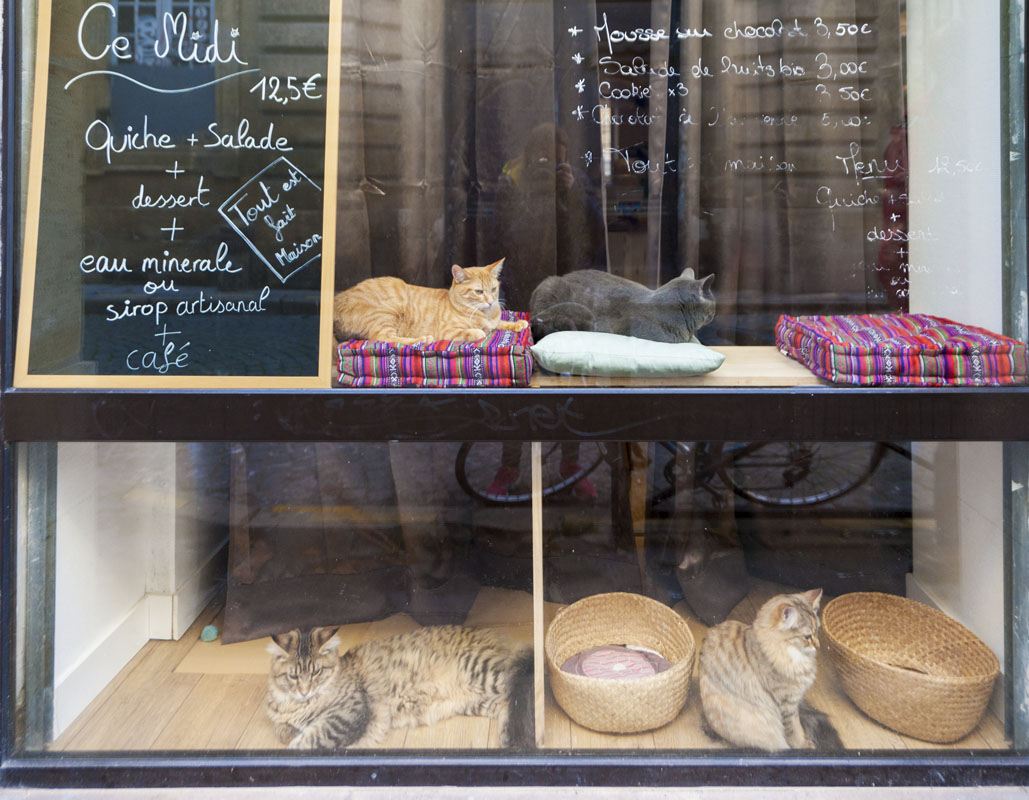 Ce Midi
12,5€
Quiche + Salade
+
dessert
+
eau minerale
ou
sirop artisanal
+
café
Tout est
fait
Maison
* Mousse au chocolat 3,50€
* Salade de fruits bio 3,00€
* Cookie x3 3,50€
* 5,00€
* Tout maison
Menu 12,50€
Quiche +
+
dessert
+
eau min